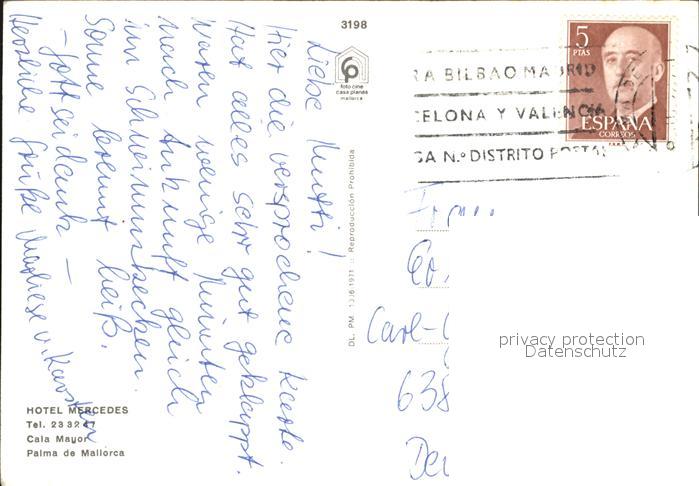 3198
foto cine
casa planas
mallorca
5
PTAS
ESPAÑA
CORREOS
RA BILBAO MADRID
CELONA Y VALENCIA
GA N.º DISTRITO POSTAL
Liebe Mutti!
Hier die versprochene Karte.
Hat alles sehr gut geklappt.
Waren wenige Minuten
nach Ankunft gleich
im Schwimmbecken.
Sonne brennt heiß.
– Gott sei dank –
Herzliche Grüße Marliese u. Karsten
DL. PM. 1316-1971 :: Reproducción Prohibida
Carl-
638
privacy protection
Datenschutz
HOTEL MERCEDES
Tel. 23 32 47
Cala Mayor
Palma de Mallorca